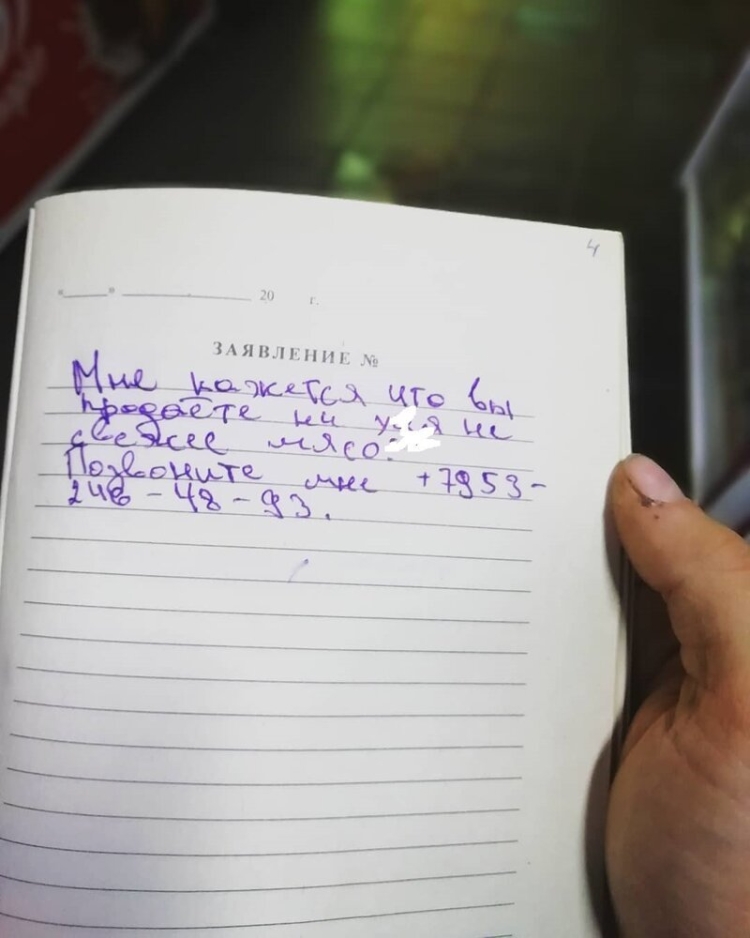 4
"____" ______________ 20 г.
ЗАЯВЛЕНИЕ №
Мне кажется что вы
продаёте ни не
свежее мясо.
Позвоните мне +7953-
248-48-93.